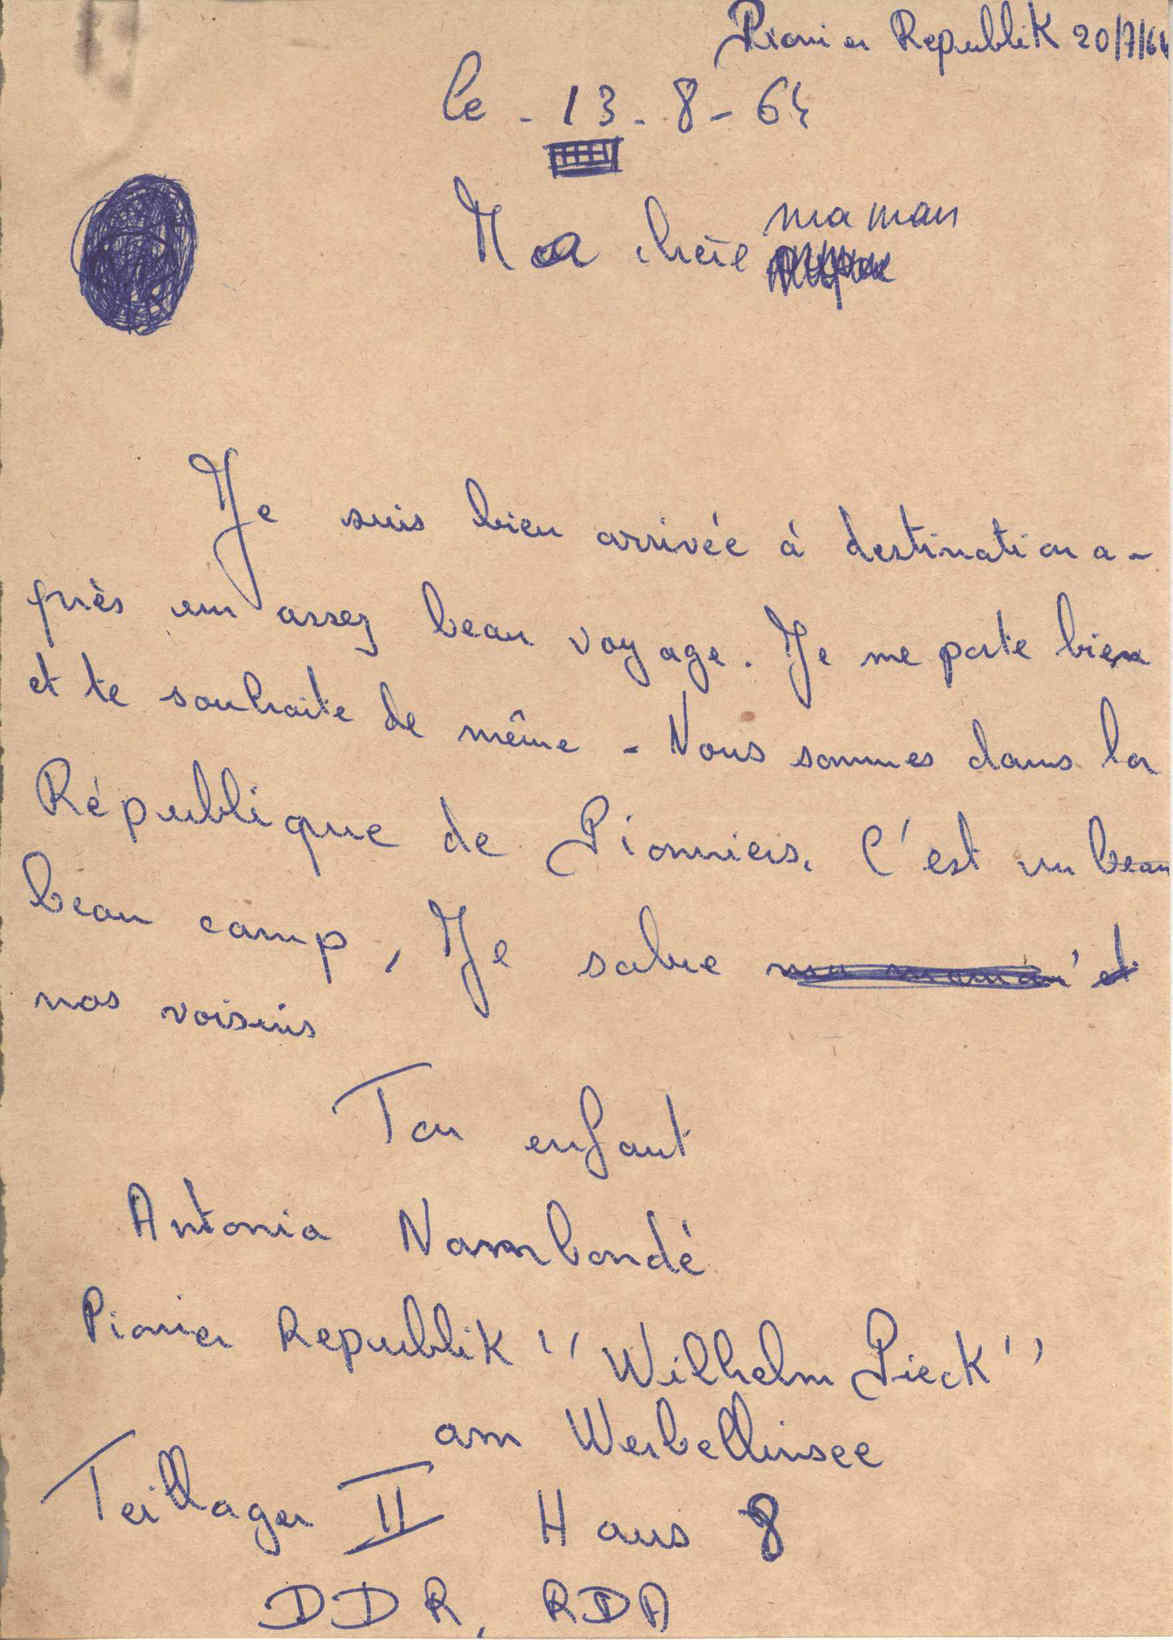 Pionier Republik 20/7/64
le - 13 - 8 - 64
Ma chère maman
Je suis bien arrivée à destination a-
près un assez beau voyage. Je me porte bien
et te souhaite de même - Nous sommes dans la
République de Pionniers. C'est un beau
beau camp, Je salue ma maman et
nos voisins
Ton enfant
Antonia Nambondé
Pionier Republik "Wilhelm Pieck"
am Werbellinsee
Teillager II Haus 8
DDR, RDA